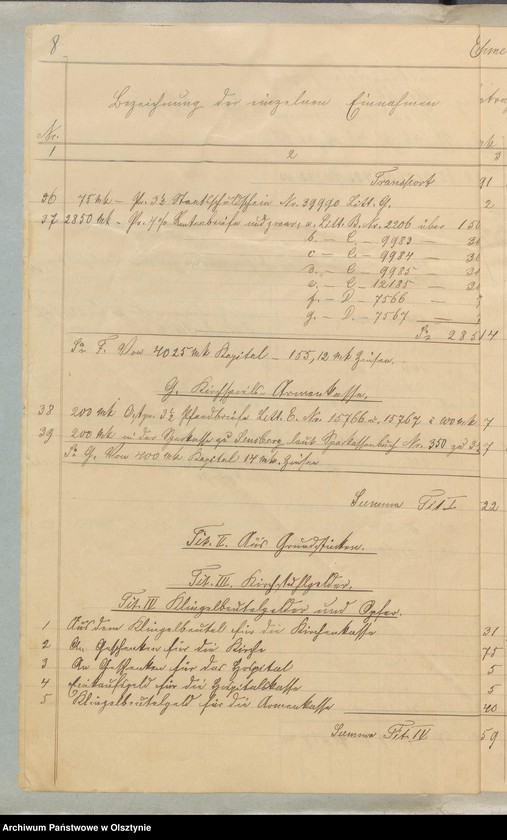 8
Bezeichnung der einzelnen Einnahmen
Nr.
1 2 3
Transport 91
36 75 Mk – Pr. 3½ Staatsschuldschein Nr. 39990 Litt. G. 2
37 2850 Mk – Pr. 4% Rentenbriefe und zwar: a. Litt. B. Nr. 2206 über 150
b. – C. – 9983 – 30
c – C. – 9984 – 30
d. – C. – 9985 – 30
e. – C – 12185 – 30
f. – D – 7566 –
g. – D. – 7567 –
Sa 2851 4
Sa F. Von 4025 Mk Kapital – 155,12 Mk Zinsen.
G. Kirchspiels-Armenkasse.
38 200 Mk Ostpr. 3½ Pfandbriefe Litt. E. Nr. 15766 u. 15767 a 100 Mk 7
39 200 Mk in der Sparkasse zu Sensburg laut Sparkassenbuch Nr. 350 zu 3½ 7
Sa G. Von 400 Mk Kapital 14 Mk. Zinsen
Summa Tit. I 22
Tit. II. Aus Grundstücken.
Tit. III. Kirchstuhlgelder.
Tit. IV Klingelbeutelgelder und Opfer.
1 Aus dem Klingelbeutel für die Kirchenkasse 31
2 An Geschenken für die Kirche 75
3 An Geschenken für das Hospital 5
4 Einkaufsgeld für die Hospitalskasse 5
5 Klingelbeutelgeld für die Armenkasse 40
Summa Tit. IV 59
Archiwum Państwowe w Olsztynie